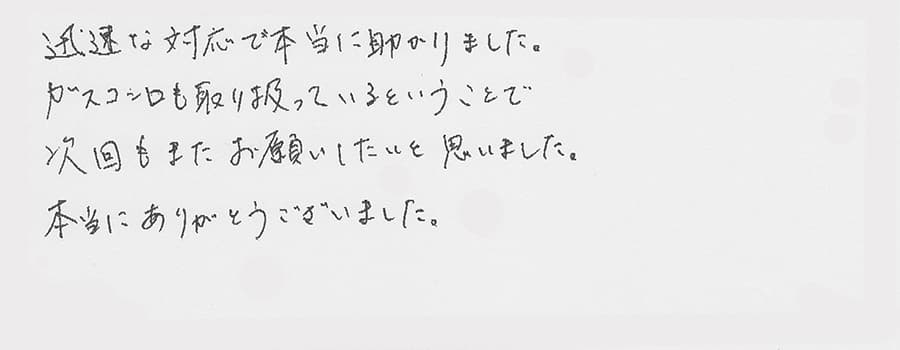 迅速な対応で本当に助かりました。
ガスコンロも取り扱っているということで
次回もまたお願いしたいと思いました。
本当にありがとうございました。